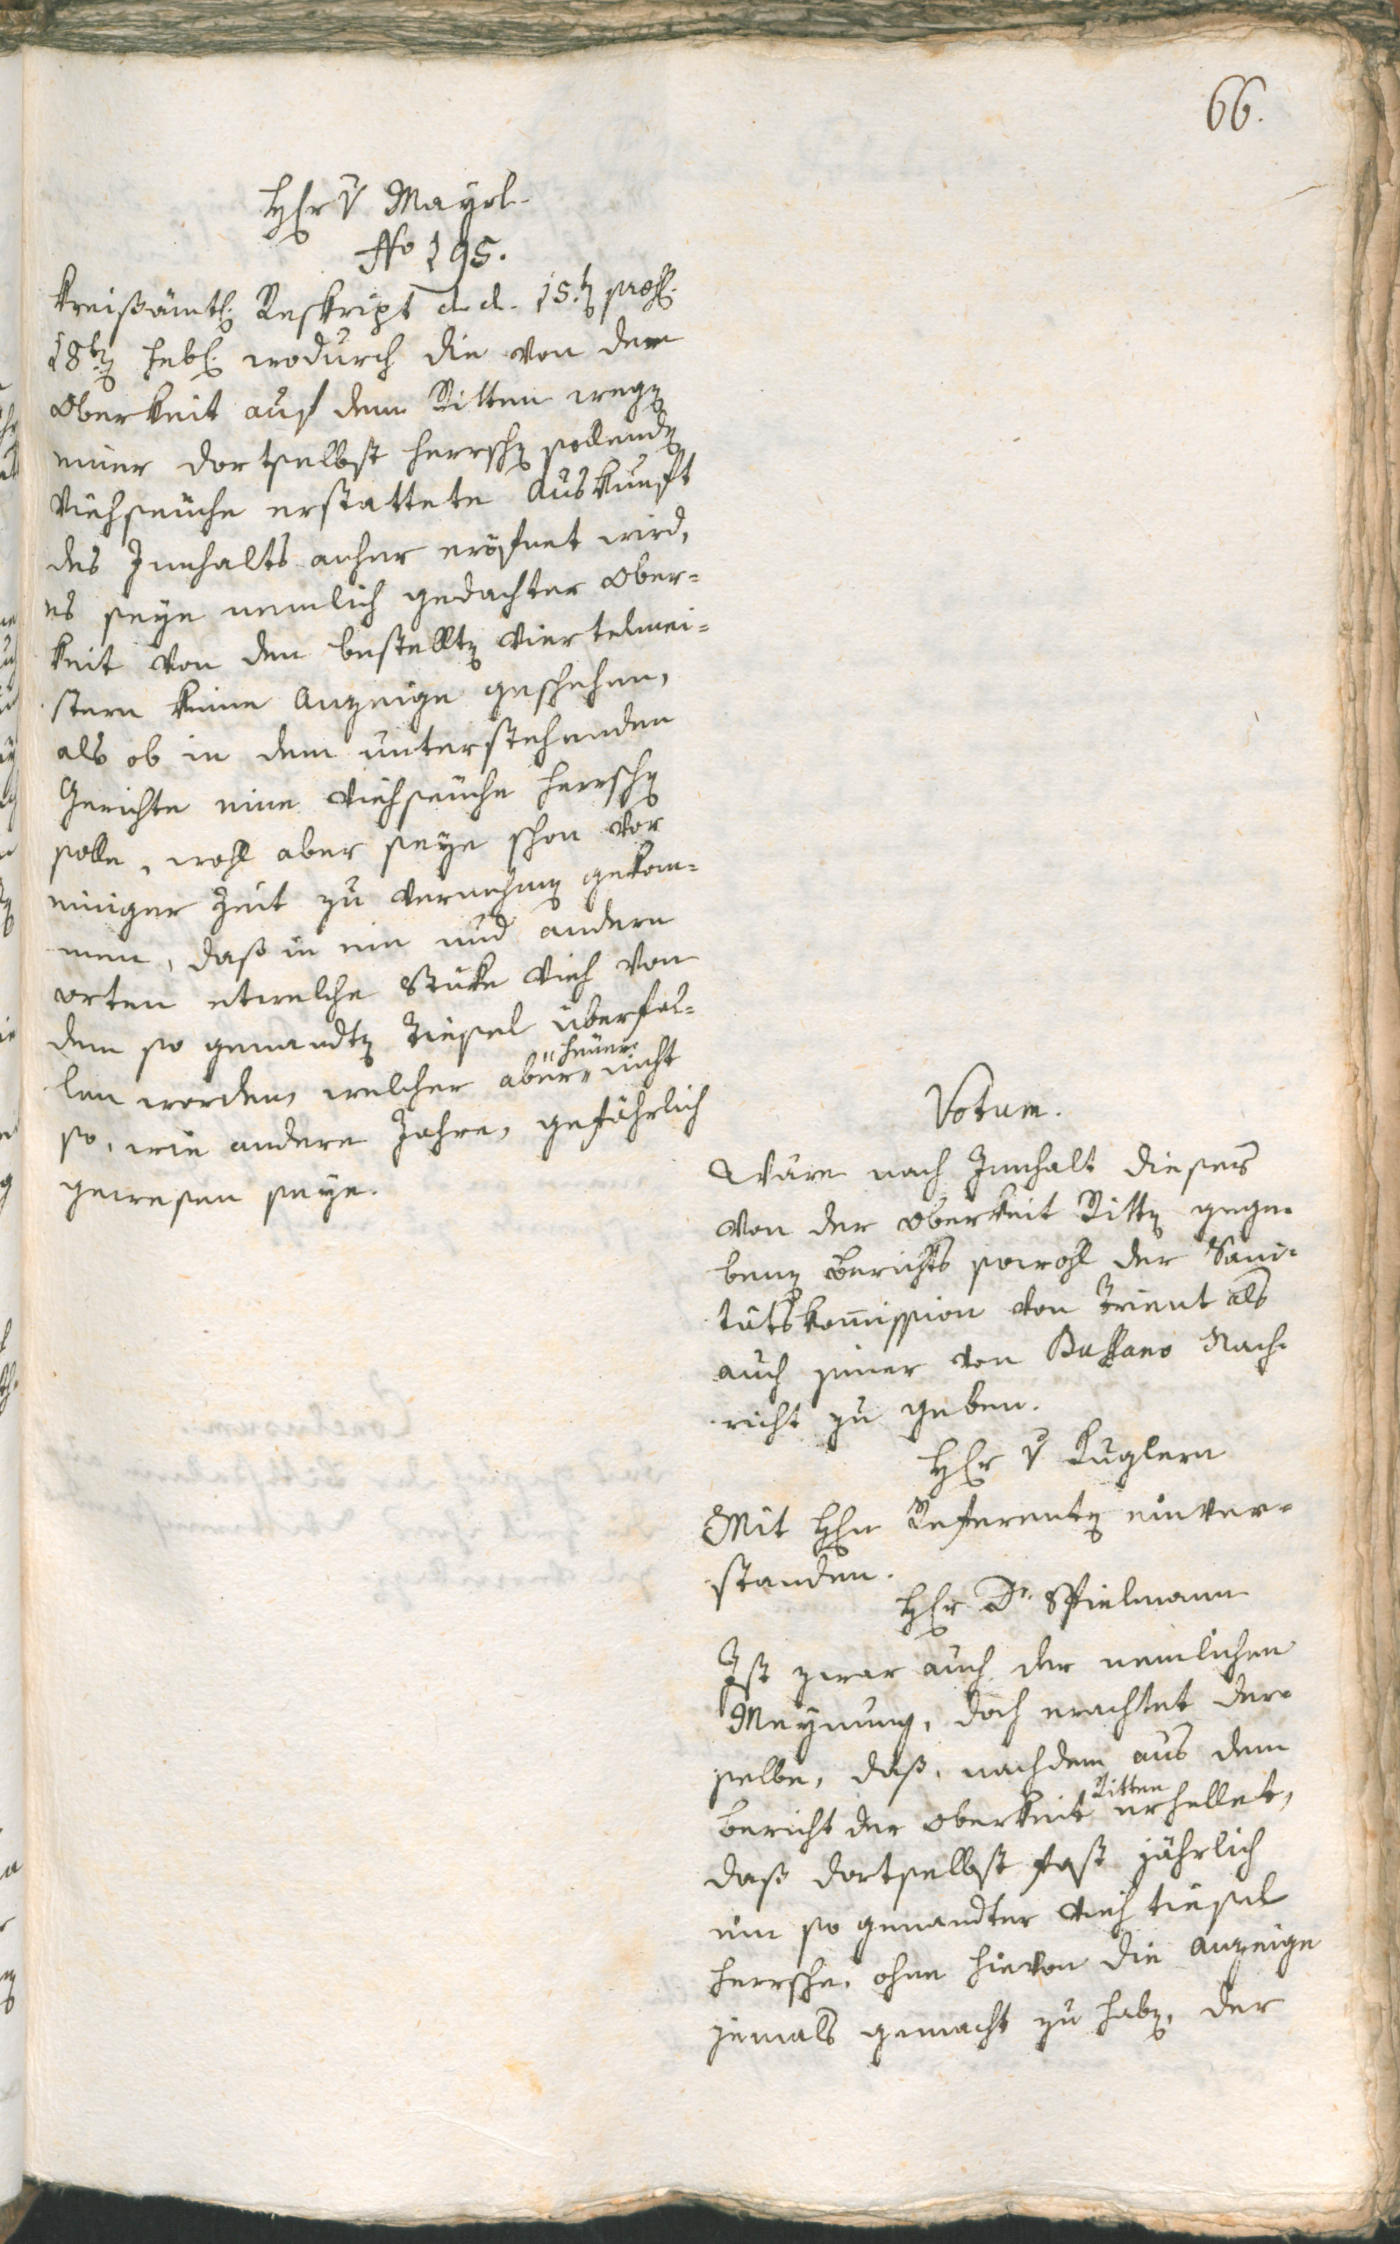 66.
Herr v Mayrl.
No 195.
Kreißämtl: Reskript d. d. 15.t praes:
18t hebl: wodurch die von der
Oberkeit auf dem Ritten wegen
einer dortselbst herrschen sollenden
Viehseuche erstattete Auskunft
des Innhalts anher eröfnet wird,
es seye nemlich gedachter Ober-
keit von den bestellten Viertelmei-
stern keine Anzeige geschehen,
als ob in dem unterstehenden
Gerichte eine Viehseuche herrschen
solle, wohl aber seye schon vor
einiger Zeit zu vernehmen gekom-
men, daß in ein und andern
orten etwelche Stüke Vieh von
dem so genandten Tiesel überfal-
len worden, welcher aber heuer nicht
so, wie andere Jahre, gefährlich
gewesen seye.
Votum.
Wäre nach Innhalt dieses
von der Oberkeit Ritten gege-
benen Berichts sowohl der Sani-
tätskommission von Trient als
auch jener von Bassano Nach-
richt zu geben.
Herr v Kuglern
Mit Herrn Referenten einver-
standen.
Herr Dr. Spielmann
Ist zwar auch der nemlichen
Meynung, doch erachtet der-
selbe, daß, nachdem aus dem
Bericht der Oberkeit Ritten erhellet,
daß dortselbst fast jährlich
ein so genandter Viehtiesel
herrsche, ohne hievon die Anzeige
jemals gemacht zu haben, der